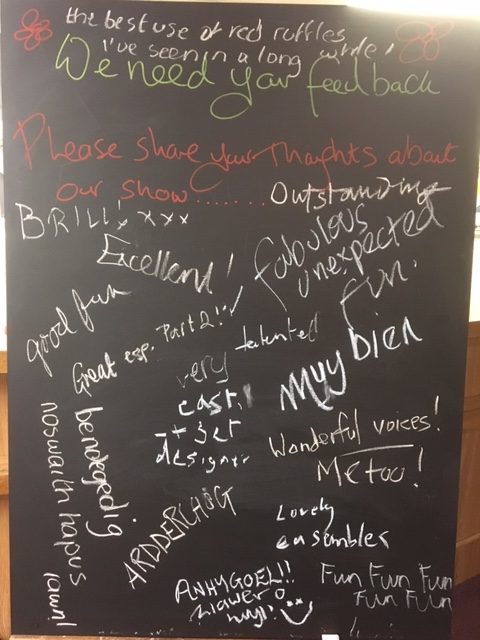 the best use of red ruffles
I've seen in a long while!
We need your feedback
Please share your thoughts about
our show.......
Outstanding
BRILL!! xxx
Excellent!
fabulous
unexpected
fun.
good fun
Great esp. Part 2!!
very talented
cast!
+ set
design
Muy bien
Wonderful voices!
Me too!
bendegedig
noswaith hapus iawn!
ARDDERCHOG
Lovely
ensembles
ANHYGOEL!!
Llawer o
hwyl!
Fun Fun Fun
Fun Fun